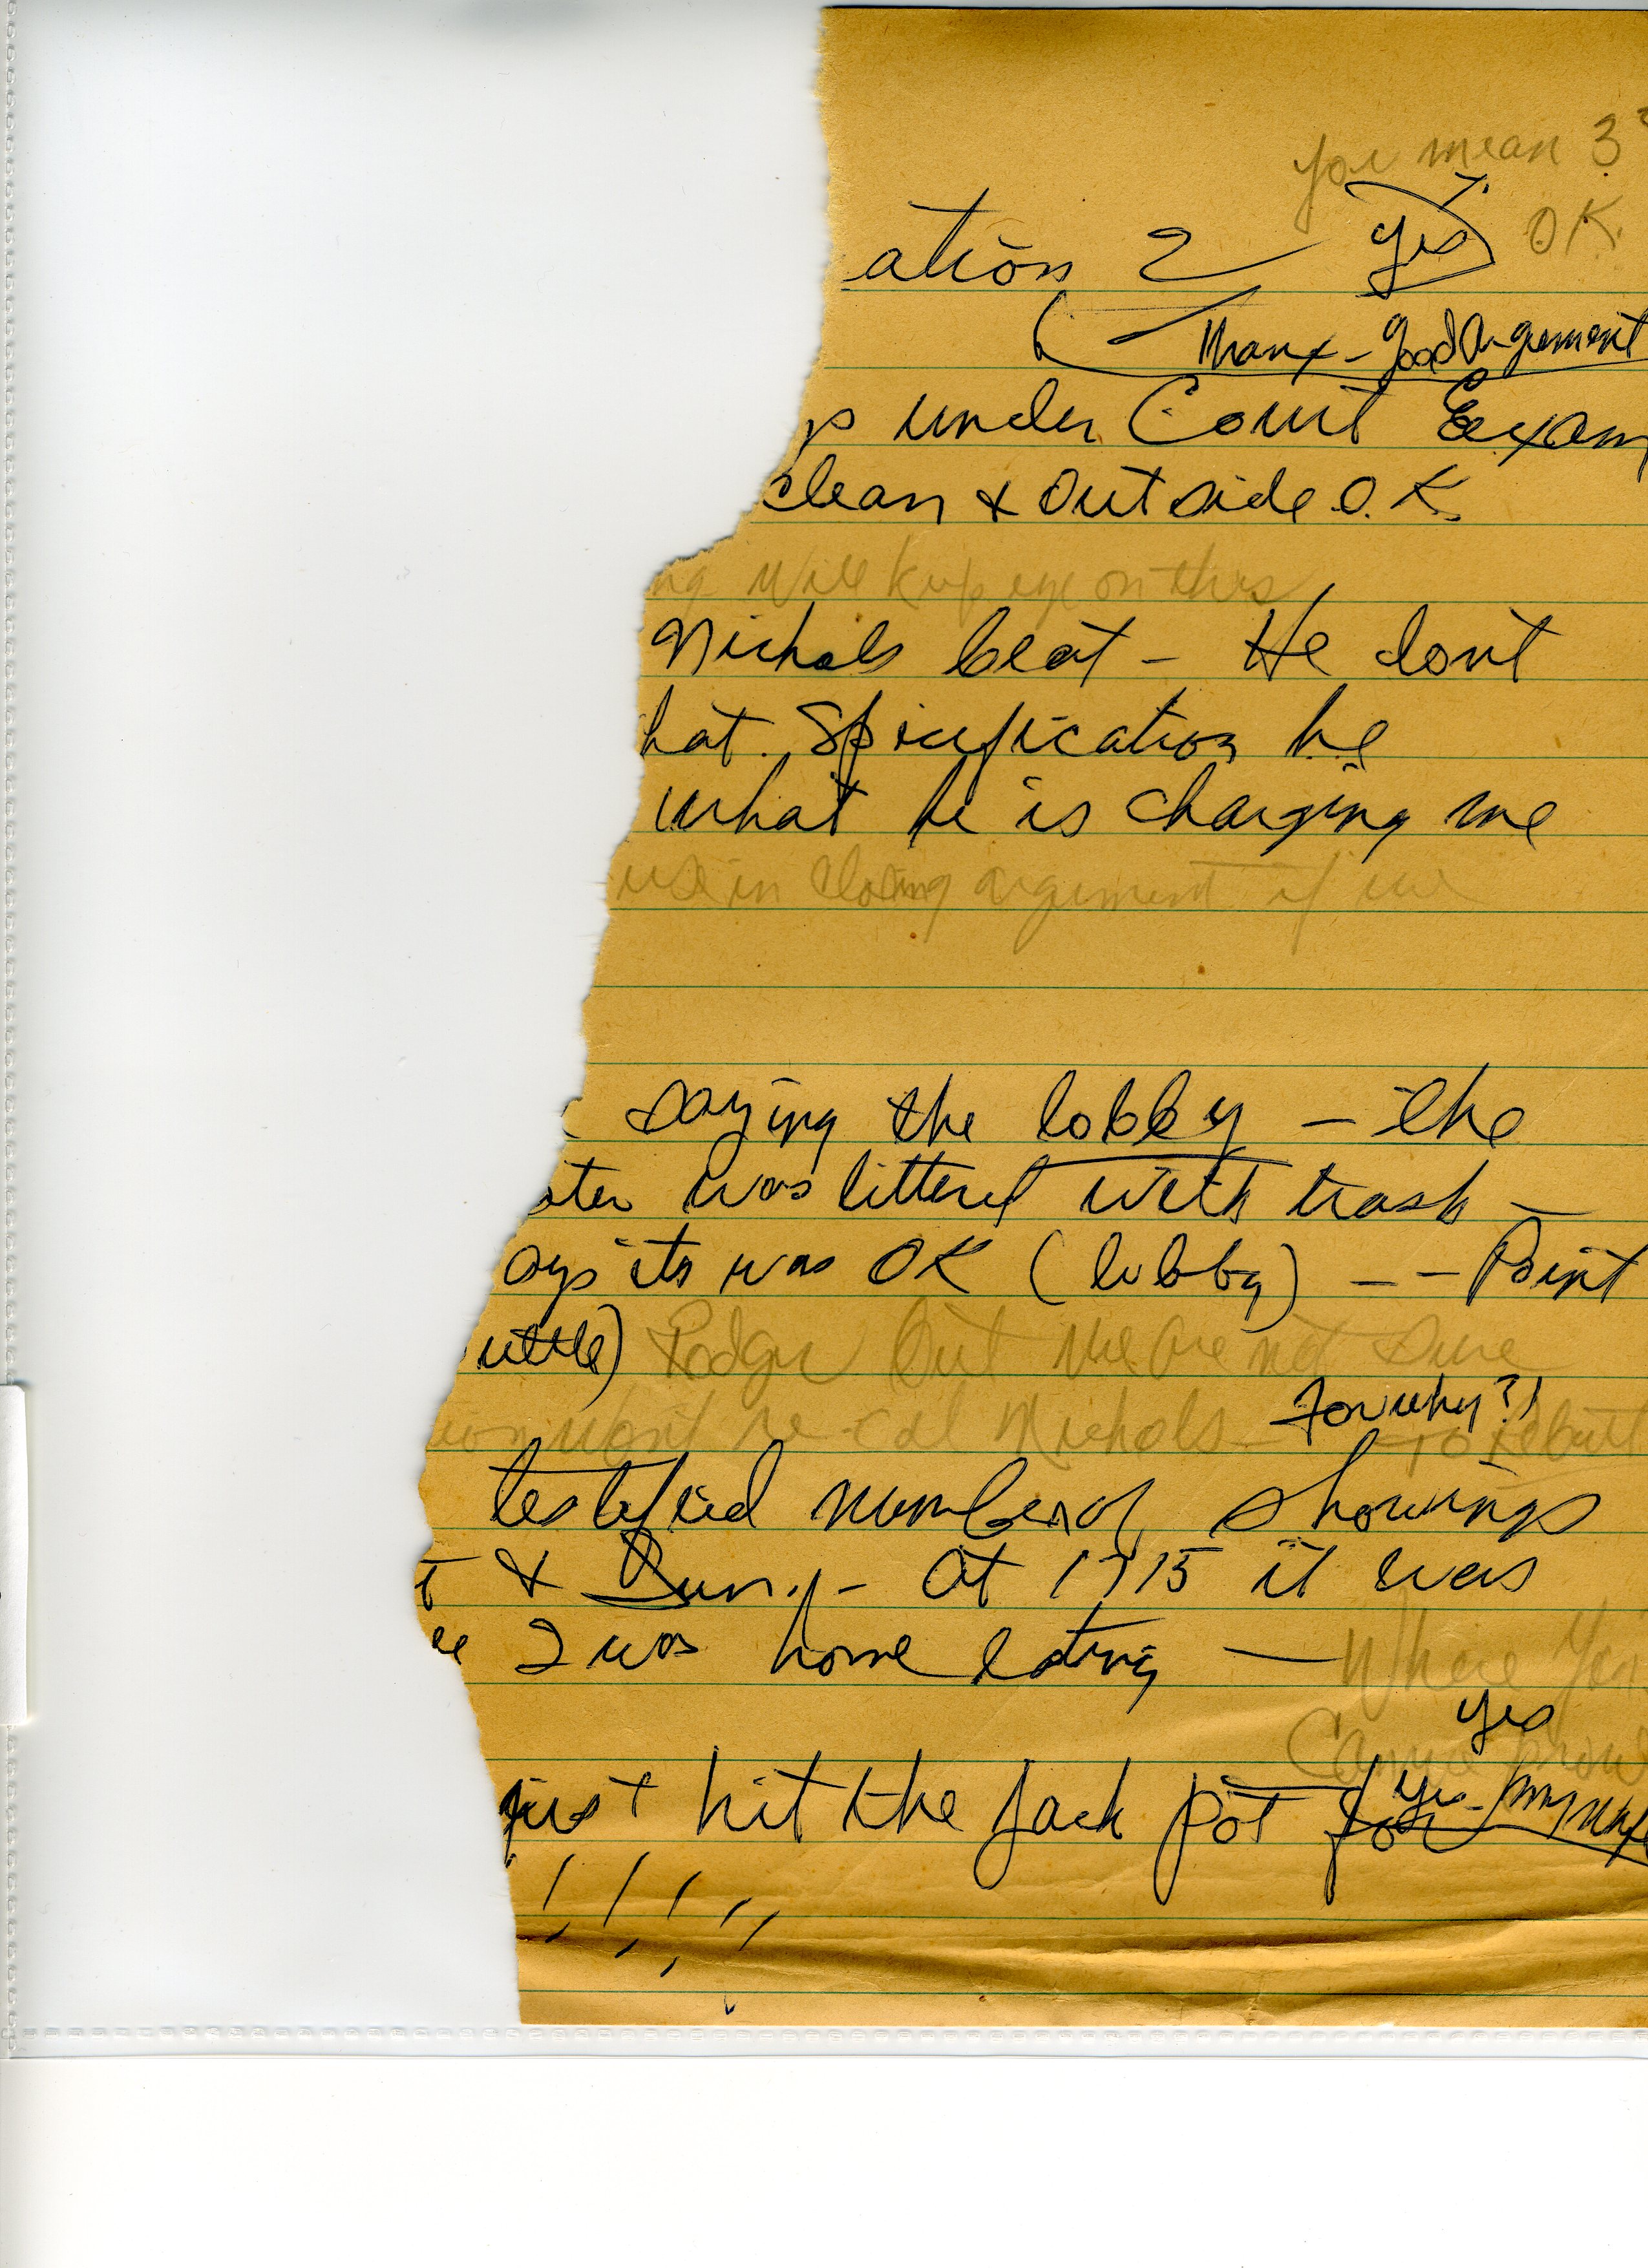 you mean 3?
ation 2 yes OK
Thanx - good Argument
ps under Court Exam
clean & outside O.K.
ng will keep eye on this
Nichols beat - He dont
hat. Spicification he
what he is charging me
use in closing argument if we
saying the lobby - the
ater was littered with trash -
ays its was OK (lobby) - - Point
uttle) but we are not sure
wont re-call Nichols - For why?! To Rebutt
testified number of showings
t & Sun. - at 1715 it was
I was home eating - Where
yes
just hit the jack pot for yes -
! ! ! ! !